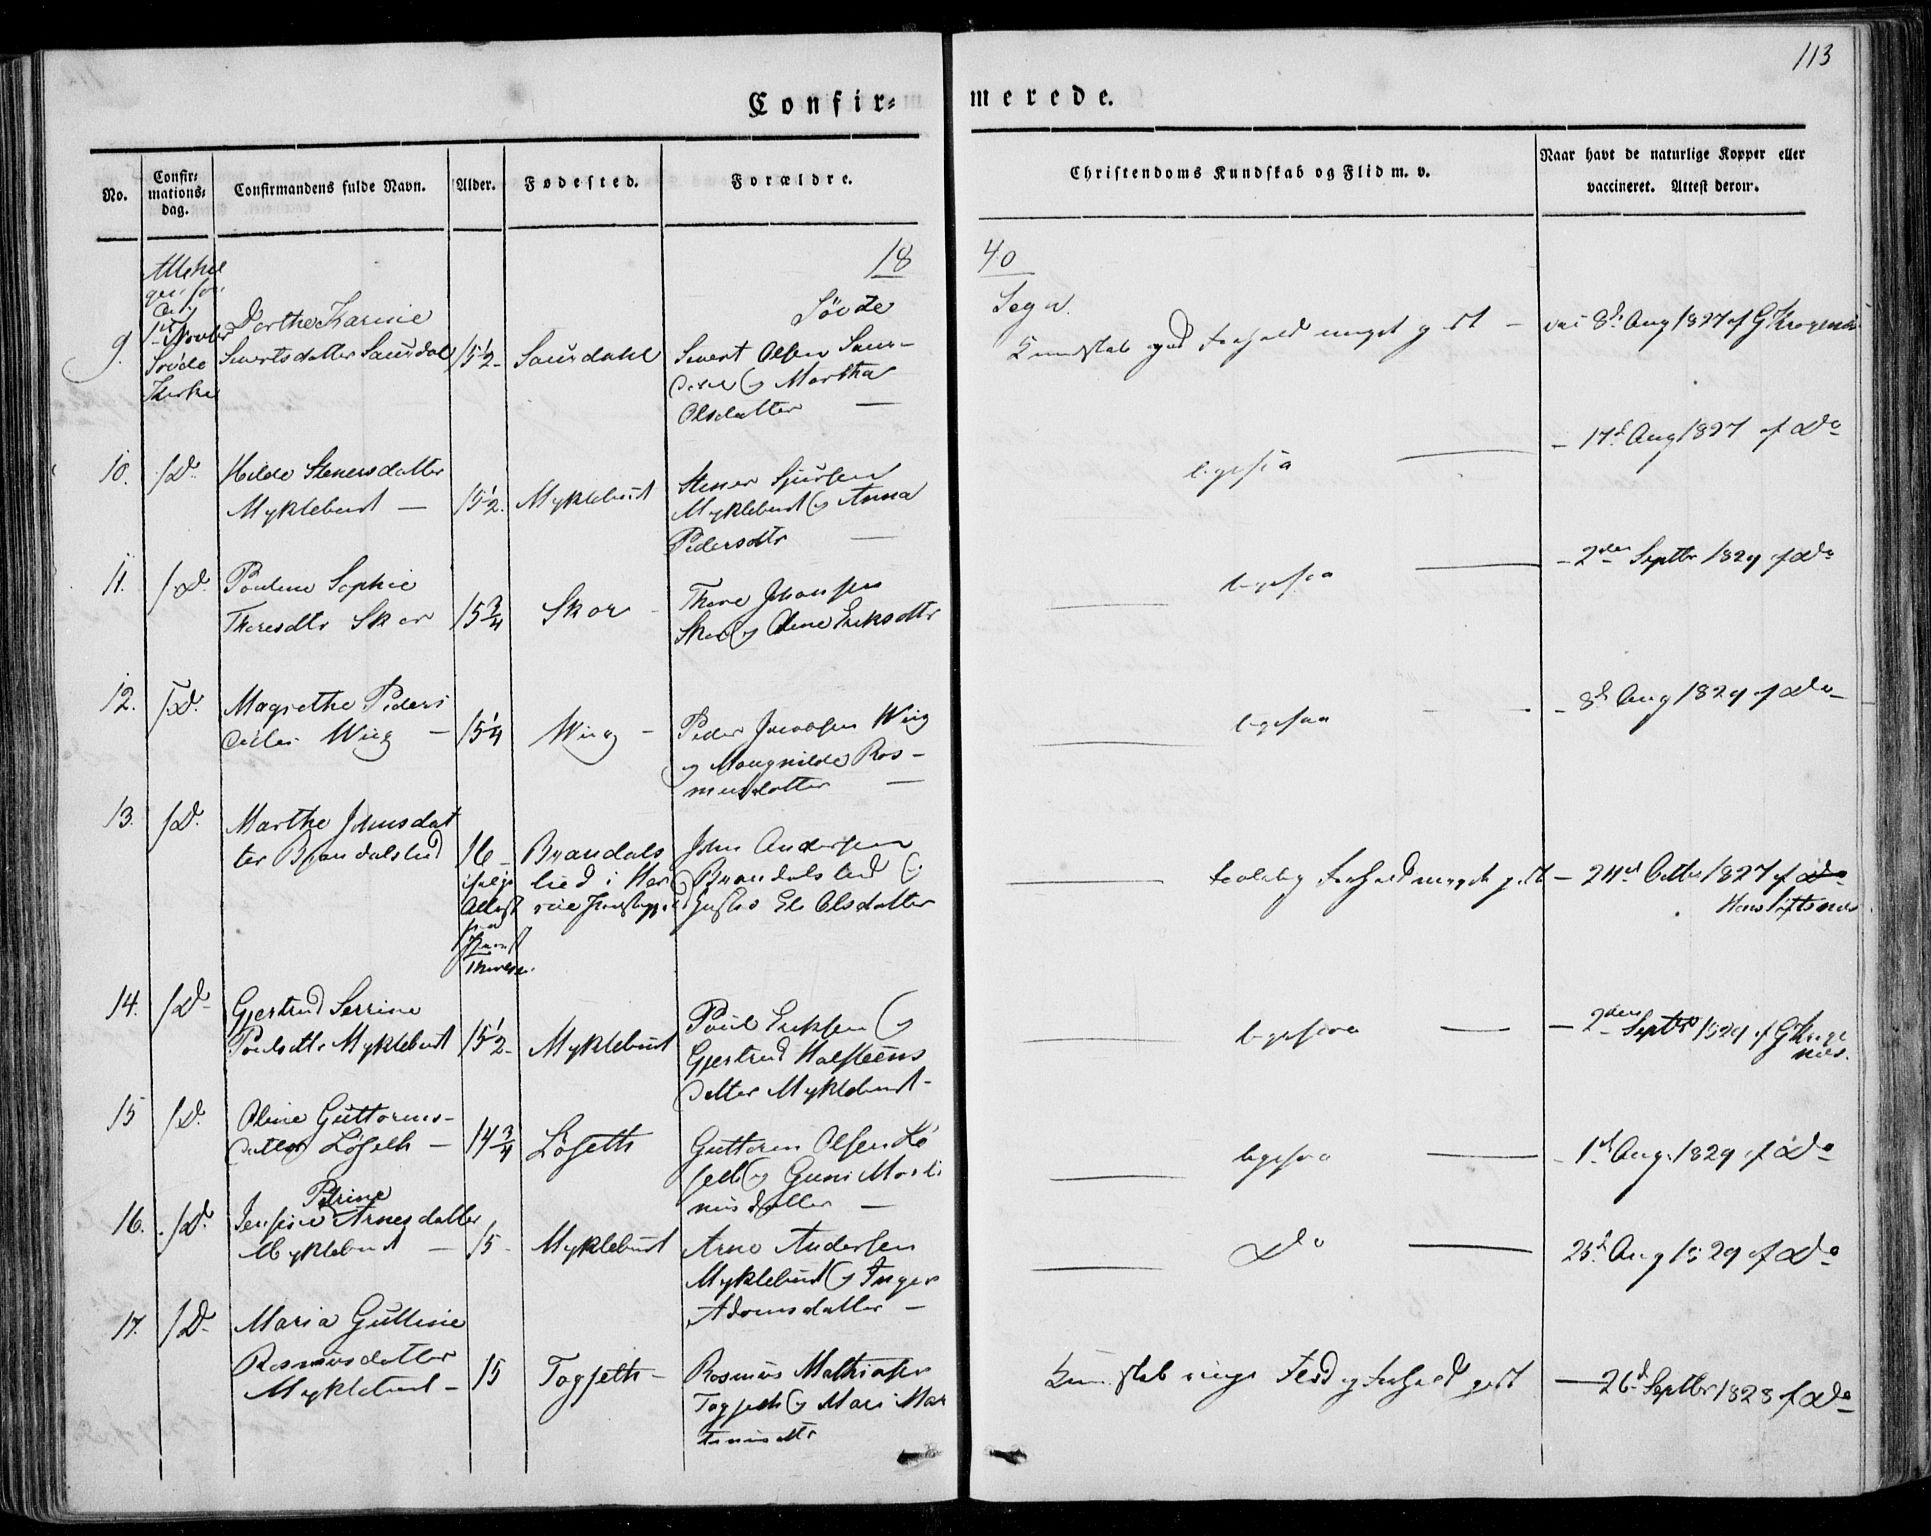 113
Confir= merede.
No.
Confir=
mations=
dag.
Confirmandens fulde Navn.
Alder.
Fødested.
Forældre.
Christendoms Kundskab og Flid m. v.
Naar havt de naturlige Kopper eller
vaccineret. Attest derom.
18 40
Søvde Sogn.
9.
1ste Novbr
Søvde
Kirke
Dorthe Karine
Sivertsdatter Saurdal
15 1/2
Saurdahl
Sivert Olsen Saur-
dal og Martha
Olsdatter —
Kundskab god Forhold meget godt —
vac 8de Aug 1827 af G Krognæs
10.
/Do
Hilde Stenersdatter
Myklebust —
15 1/2.
Myklebust
Stener Sjursen
Myklebust og Anna
Pedersdtr —
ligesaa —
— 17de Aug 1827 af Do
11.
/Do
Pouline Sophie
Thoresdtr Skor
15 3/4
Skor
Thore Johansen
Skor og Oline Eriksdtr
— ligesaa —
— 2den Septbr 1829 af Do
12.
/Do.
Magrethe Peders
datter Wiig —
15 1/4
Wiig —
Peder Jacobsen Wiig
og Mangnilde Ras-
musdatter —
— ligesaa — —
— 8de Aug 1829 af Do
13.
/Do.
Marthe Johnsdat
ter Brandalslied
16
ifølge
Attest
fra
Provst
Brandals
lied i Her
røe Præstegjeld
John Andersen
Brandalslied og
Olsdatter
— taalelig Forhold meget godt
— 24de Octbr 1827 af Do
Hans
14.
/Do
Gjertrud Serrine
Poulsdtr Myklebust
15 1/2
Myklebust
Poul Eriksen og
Gjertrud Halsteens
datter Myklebust-
— ligesaa —
— 2den Septbr 1829 af G Krog
næs.
15
/Do.
Oline Guttorms-
datter Løseth —
14 3/4
Løseth
Guttorm Olsen Lø
seth og Guni Marti
nusdatter —
— ligesaa —
— 1ste Aug. 1829 af Do
16.
/Do.
Petrine
Jensine Arnesdatter
Myklebust —
15 -
Myklebust
Arne Andersen
Myklebust og Inger
Adamsdatter —
— Do —
25de Aug 1829 af Do
17.
/Do
Maria Gulline
Rasmusdatter
Myklebust —
15
Togseth —
Rasmus Mathiasen
Togseth og Mari Mar
tinusdtr
Kundskab ringe Flid og Forhold godt
— 26de Septbr 1828 af Do